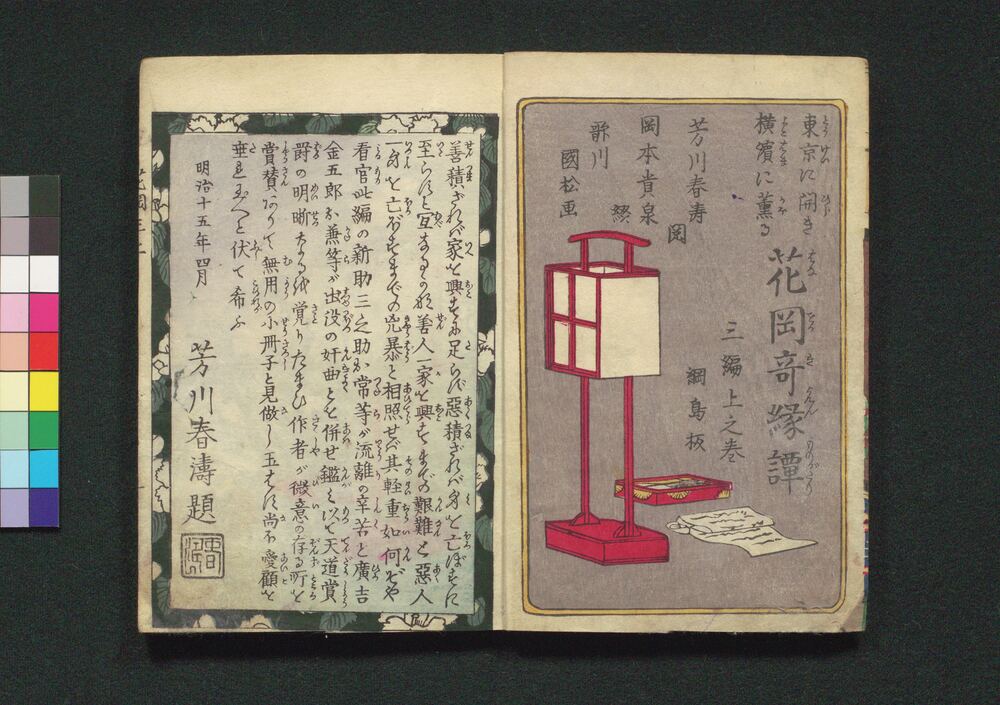 東京に開き
横濱に薫る
花岡奇縁譚
三編上之巻
綱島板
芳川春寿
岡本貴泉
歌川
國松画
善積ざれば家を興すに足らず惡積ざれば身を亡ぼすに
至らずと宜なるかな善人一家を興すまでの艱難と惡人
一身を亡ぼすまでの兇暴と相照せば其軽重如何ぞや
看官此編の新助三之助お常等が流離の辛苦と廣吉
金五郎お兼等が出没の奸曲とを併せ鑑み以て天道賞
罸の明晰なるを覚りたまひ作者が微意の存る所を
賞賛ありて無用の小冊子と見做し玉はず尚不愛顧を
垂れ玉へと伏て希ふ
明治十五年四月
芳川春濤題